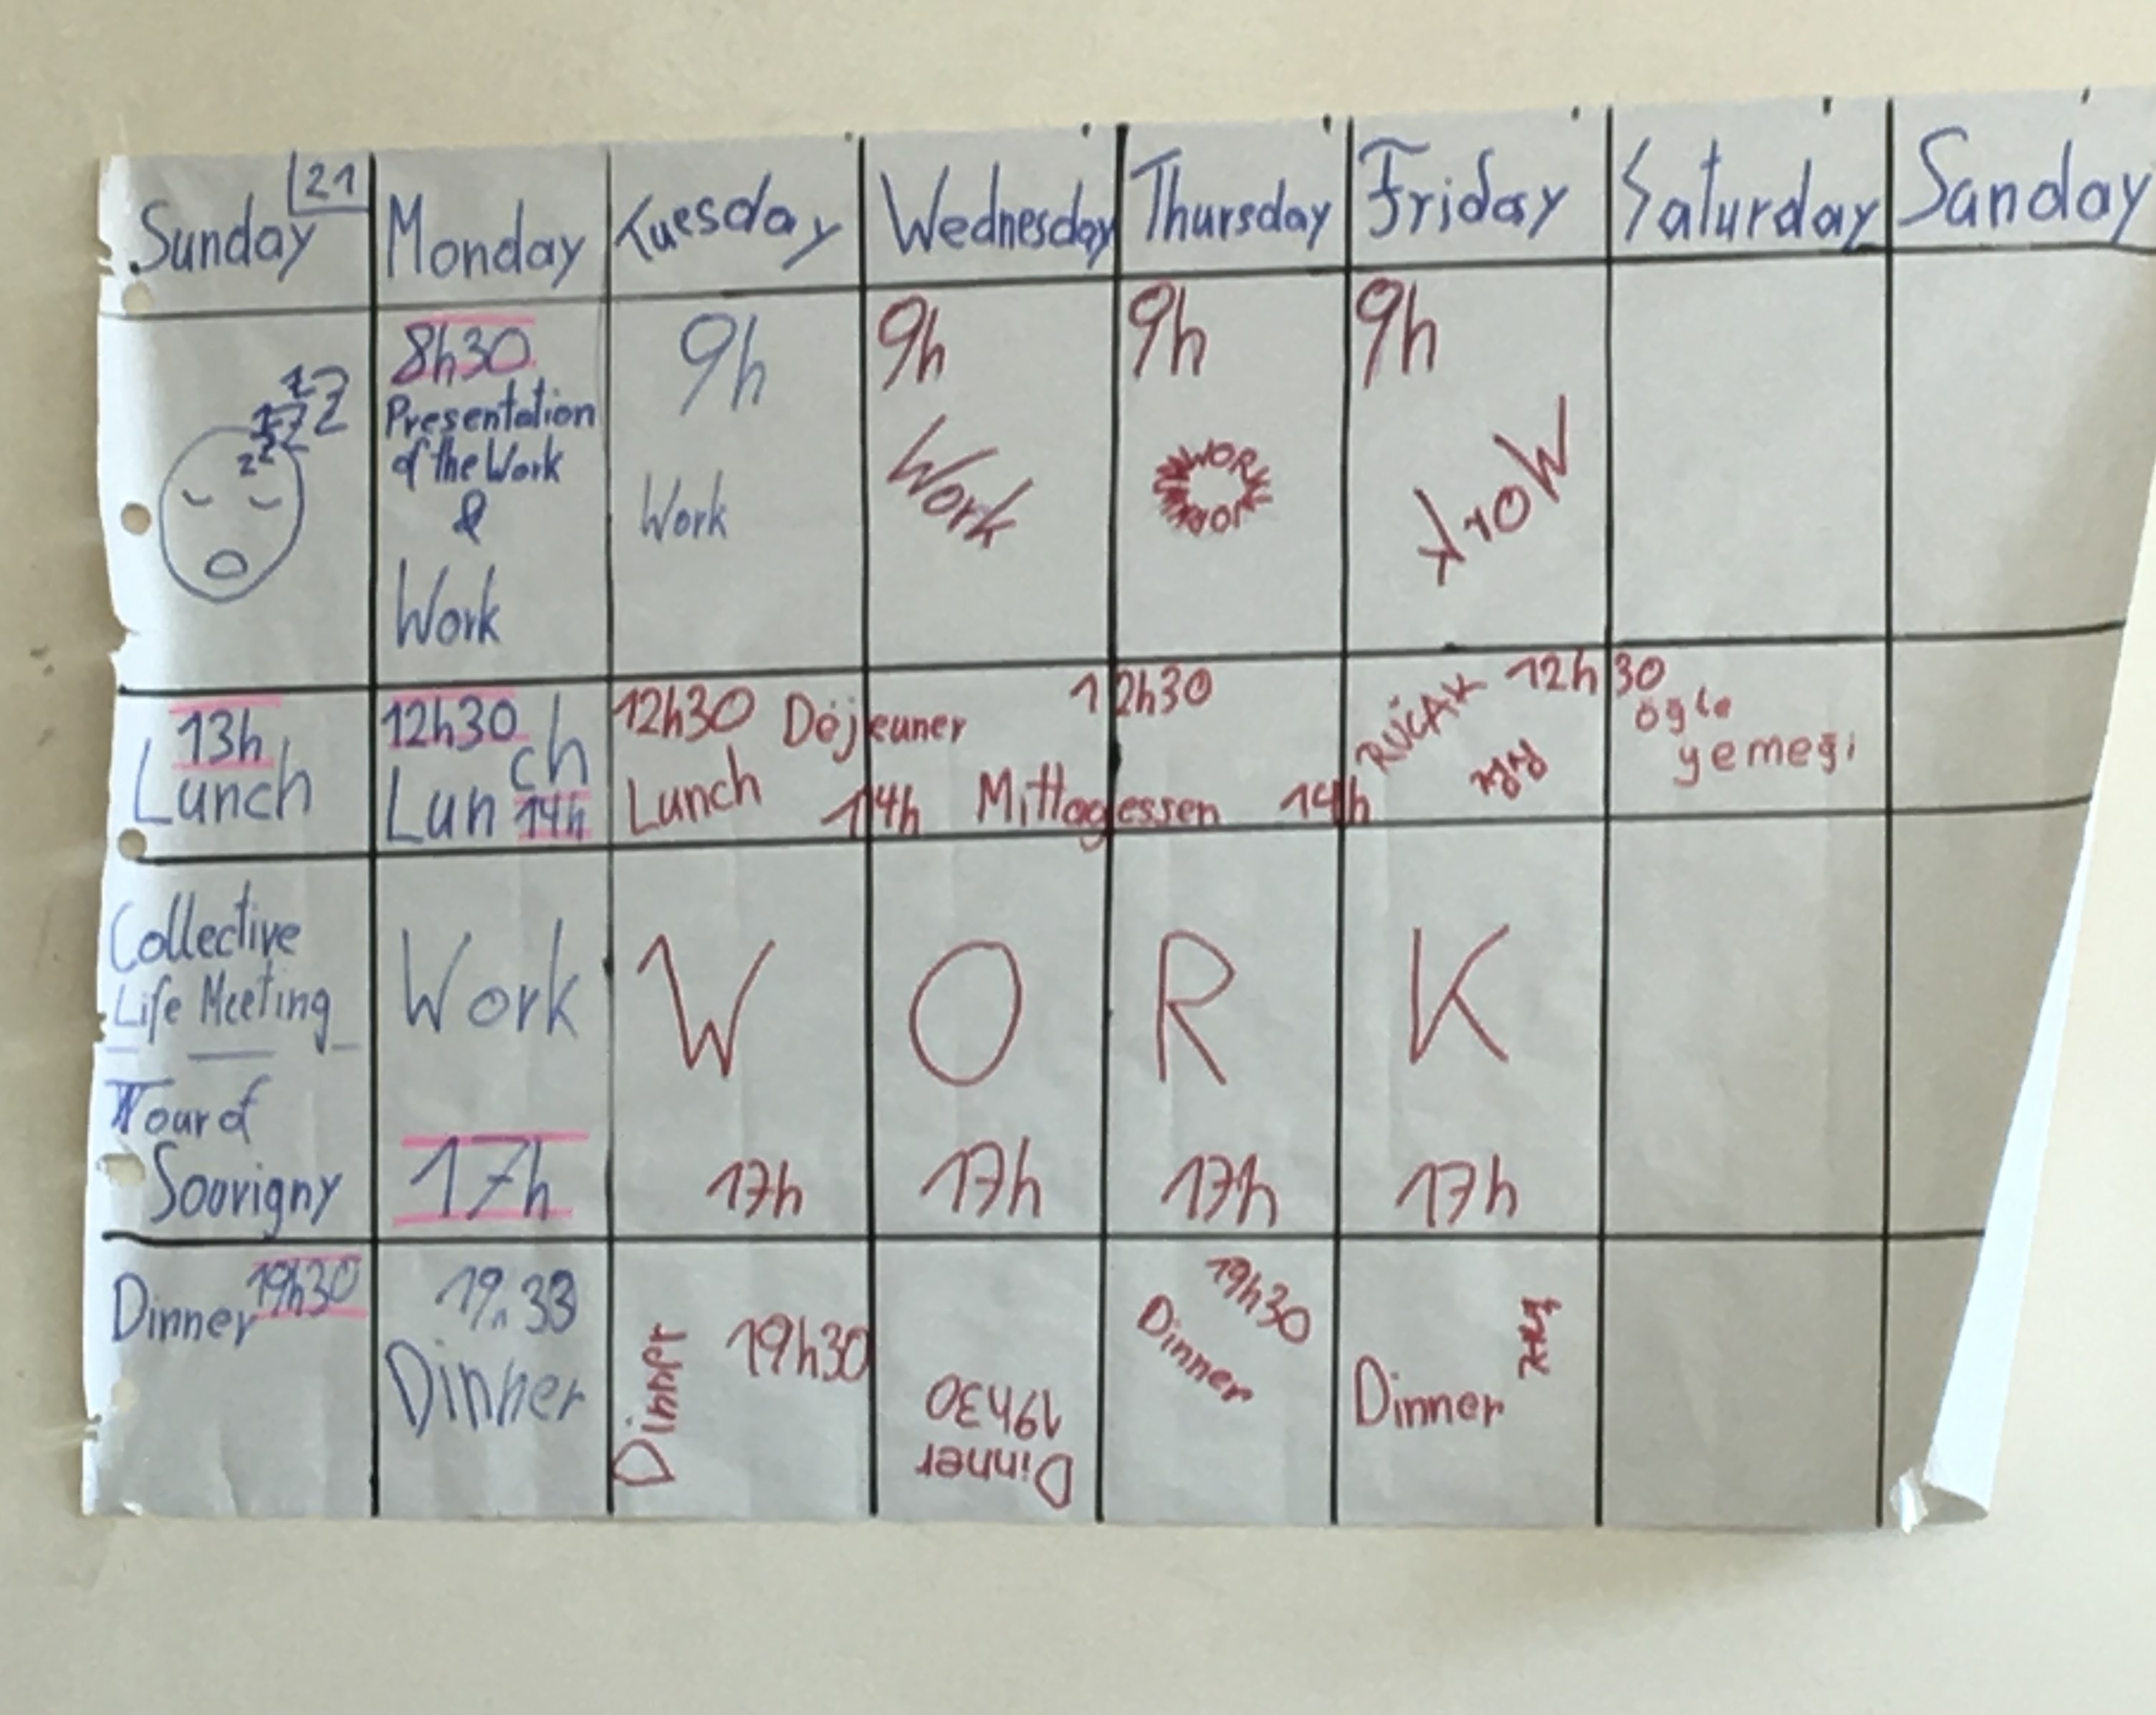 Sunday 21 Monday Tuesday Wednesday Thursday Friday Saturday Sanday
8h30 9h 9h 9h 9h
Presentation
of the Work
&
Work
Work Work Work
13h 12h30 12h30 Déjeuner 12h30 RUČAK 12h30
Lunch Lunch 14h Lunch 14h Mittagessen 14h öğle
yemeği
Collective
Life Meeting
Work W O R K
Tour of
Souvigny 17h 17h 17h 17h 17h
Dinner 19h30
19h33
Dinner
Dinner 19h30
Dinner
19h30
19h30
Dinner
Dinner